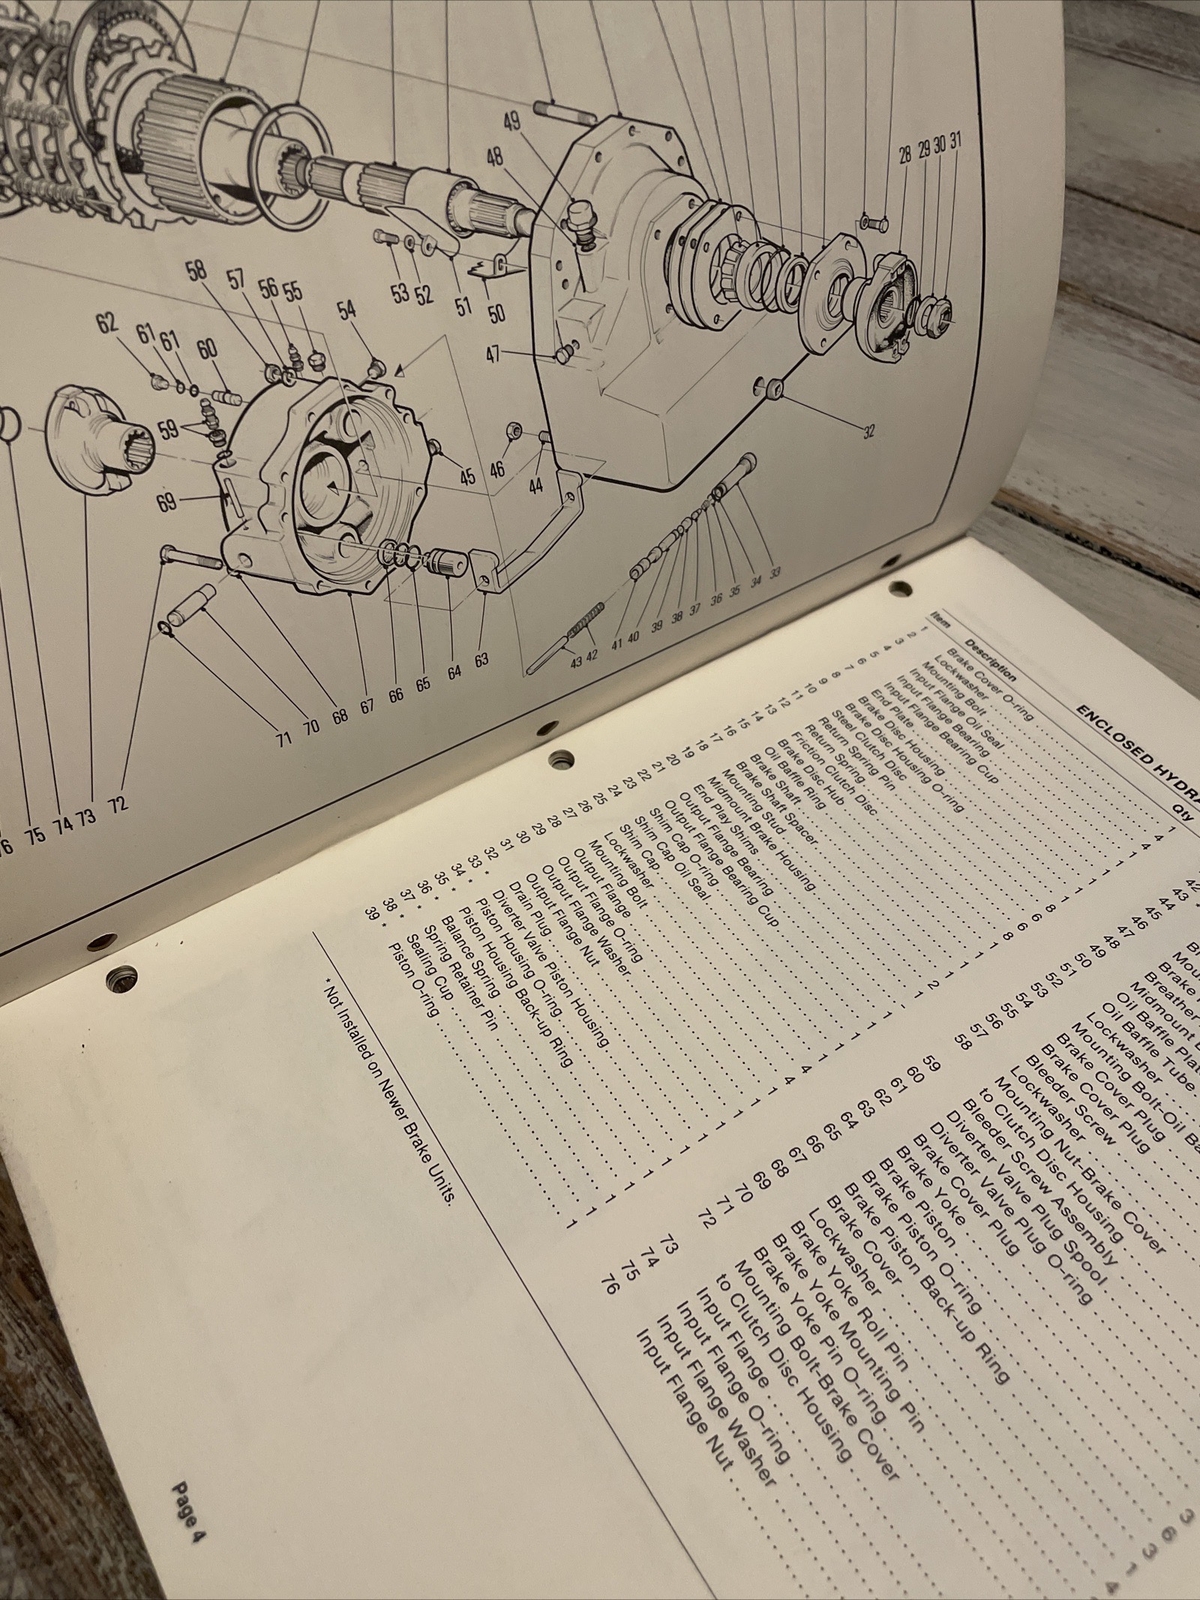 49
48
28 29 30 31
53 52 51 50
58 57 56 55 54
62 61 61 60
47
32
59
69
45 46 44
43 42 41 40 39 38 37 36 35 34 33
71 70 68 67 66 65 64 63
76 75 74 73 72
ENCLOSED HYDRA
Item Description Qty
1 Brake Cover O-ring 1
2 Lockwasher 4
3 Mounting Bolt 4
4 Input Flange Oil Seal 1
5 Input Flange Bearing 1
6 Input Flange Bearing Cup 1
7 End Plate
8 Brake Disc Housing
9 Brake Disc Housing O-ring
10 Steel Clutch Disc
11 Return Spring Pin
12 Return Spring
13 Friction Clutch Disc
14 Brake Disc Hub
15 Oil Baffle Ring
16 Brake Shaft
17 Brake Shaft Spacer
18 Mounting Stud
19 Midmount Brake Housing
20 End Play Shims
21 Output Flange Bearing
22 Output Flange Bearing Cup
23 Shim Cap O-ring
24 Shim Cap Oil Seal
25 Shim Cap
26 Lockwasher 4
27 Mounting Bolt 4
28 Output Flange 1
29 Output Flange O-ring 1
30 Output Flange Washer 1
31 Output Flange Nut 1
32 Drain Plug 1
33 * Diverter Valve Piston Housing 1
34 * Piston Housing O-ring 1
35 * Piston Housing Back-up Ring 1
36 * Balance Spring 1
37 * Spring Retainer Pin 1
38 * Sealing Cup 1
39 * Piston O-ring 1
* Not Installed on Newer Brake Units.
42
43 *
44
45
46
47 Brake
48 Breather
49 Midmount
50 Oil Baffle
51 Oil Baffle Tube
52 Lockwasher
53 Mounting Bolt-Oil
54 Brake Cover Plug
55 Brake Cover Plug
56 Bleeder Screw
57 Lockwasher
58 Mounting Nut-Brake Cover
to Clutch Disc Housing
59 Bleeder Screw Assembly
60 Diverter Valve Plug Spool
61 Diverter Valve Plug O-ring
62 Brake Cover Plug
63 Brake Yoke
64 Brake Piston
65 Brake Piston O-ring
66 Brake Piston Back-up Ring
67 Brake Cover
68 Lockwasher
69 Brake Yoke Roll Pin
70 Brake Yoke Mounting Pin
71 Brake Yoke Pin O-ring
72 Mounting Bolt-Brake Cover
to Clutch Disc Housing
73 Input Flange
74 Input Flange O-ring
75 Input Flange Washer
76 Input Flange Nut
Page 4